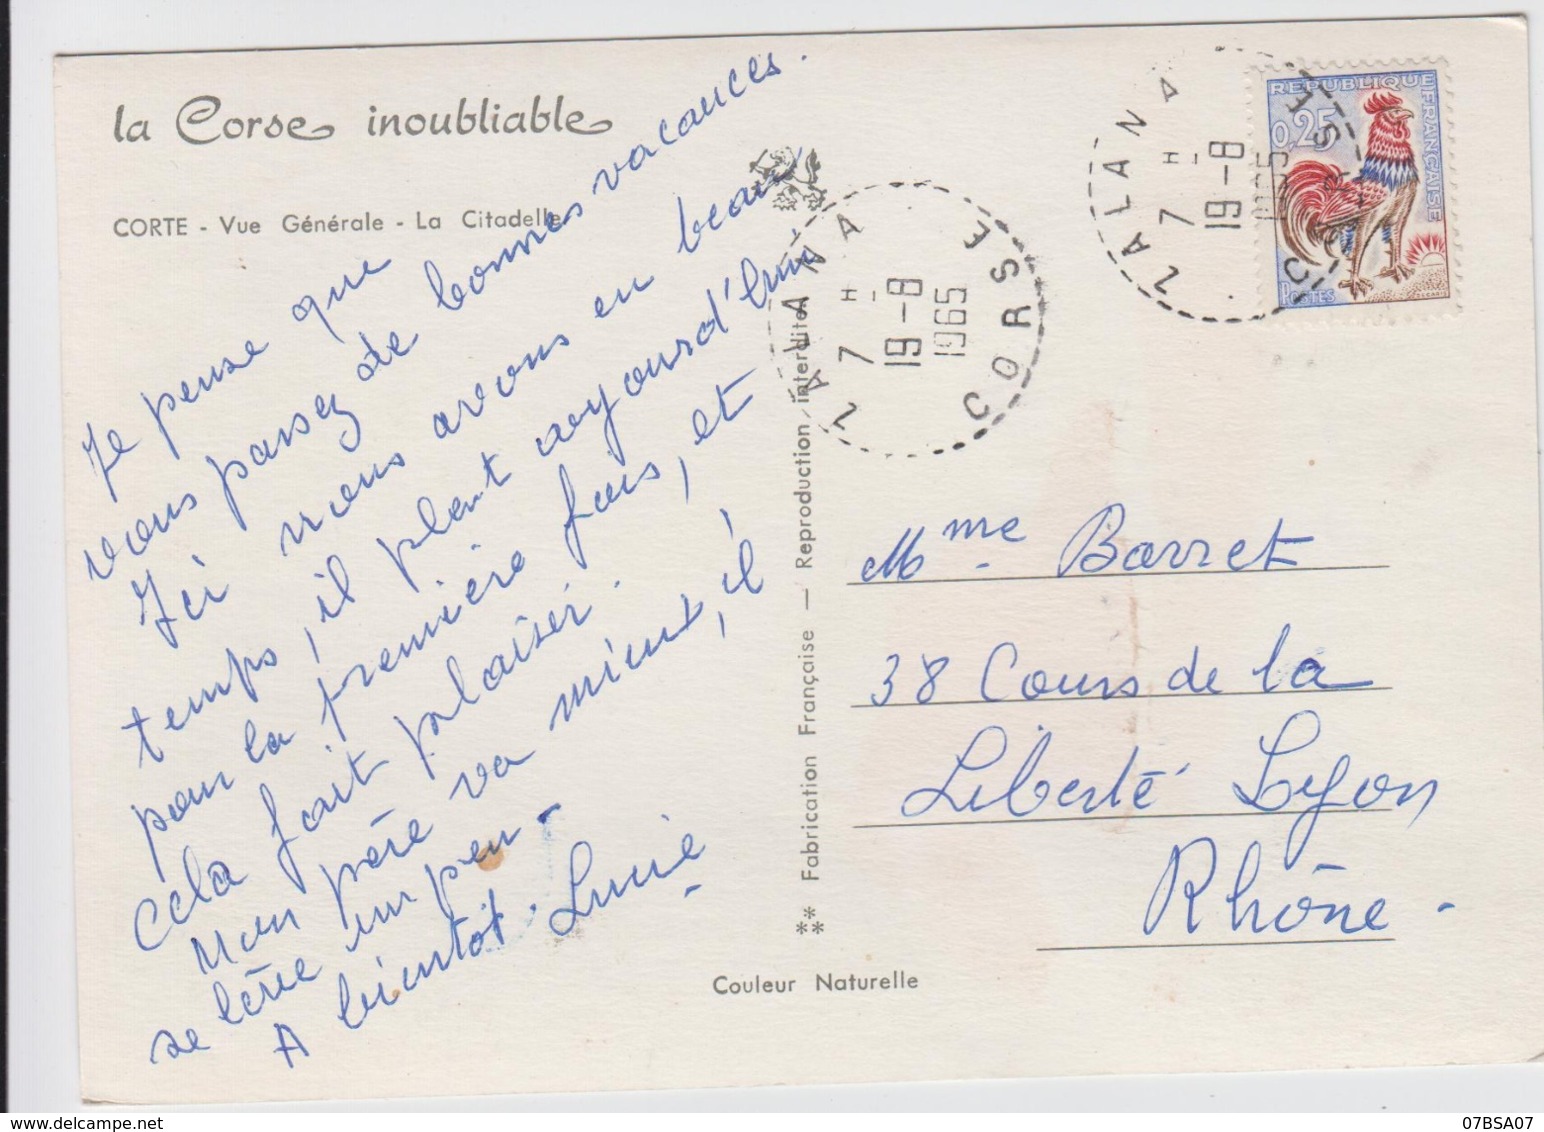 la Corse inoubliable
CORTE - Vue Générale - La Citadelle
Je pense que
vous passez de bonnes vacances.
Ici nous avons eu beau
temps, il pleut aujourd'hui
pour la première fois, et
cela fait plaisir.
Mon père va mieux, il
se lève un peu.
A bientôt. Lucie
** Fabrication Française — Reproduction interdite
**
Couleur Naturelle
ZALANA CORSE
7 H
19-8
1965
ZALANA CORSE
7 H
19-8
1965
REPUBLIQUE FRANÇAISE
0,25
POSTES
Mme Barret
38 Cours de la
Liberté Lyon
Rhône.
07BSA07